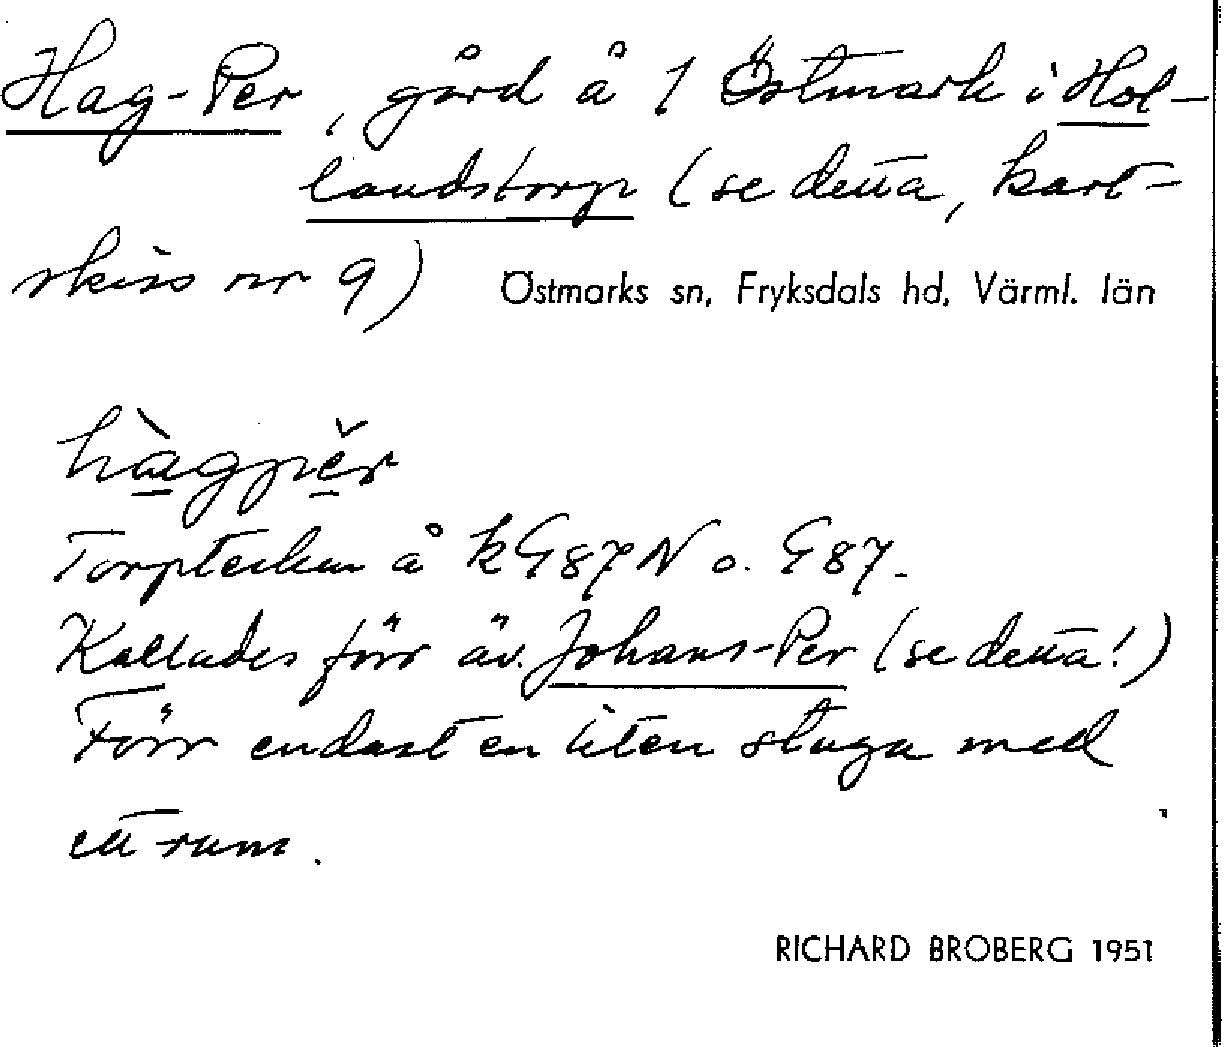 Hag-Per, gård å 1 Östmark i Hol-
landstorp (se detta, kart-
skiss nr 9) Östmarks sn, Fryksdals hd, Värml. län
hàgpĕr
Torptecken å kG87N o. G87.
Kallades förr äv. Johans-Per (se detta!)
Förr endast en liten stuga med
ett rum.
RICHARD BROBERG 1951